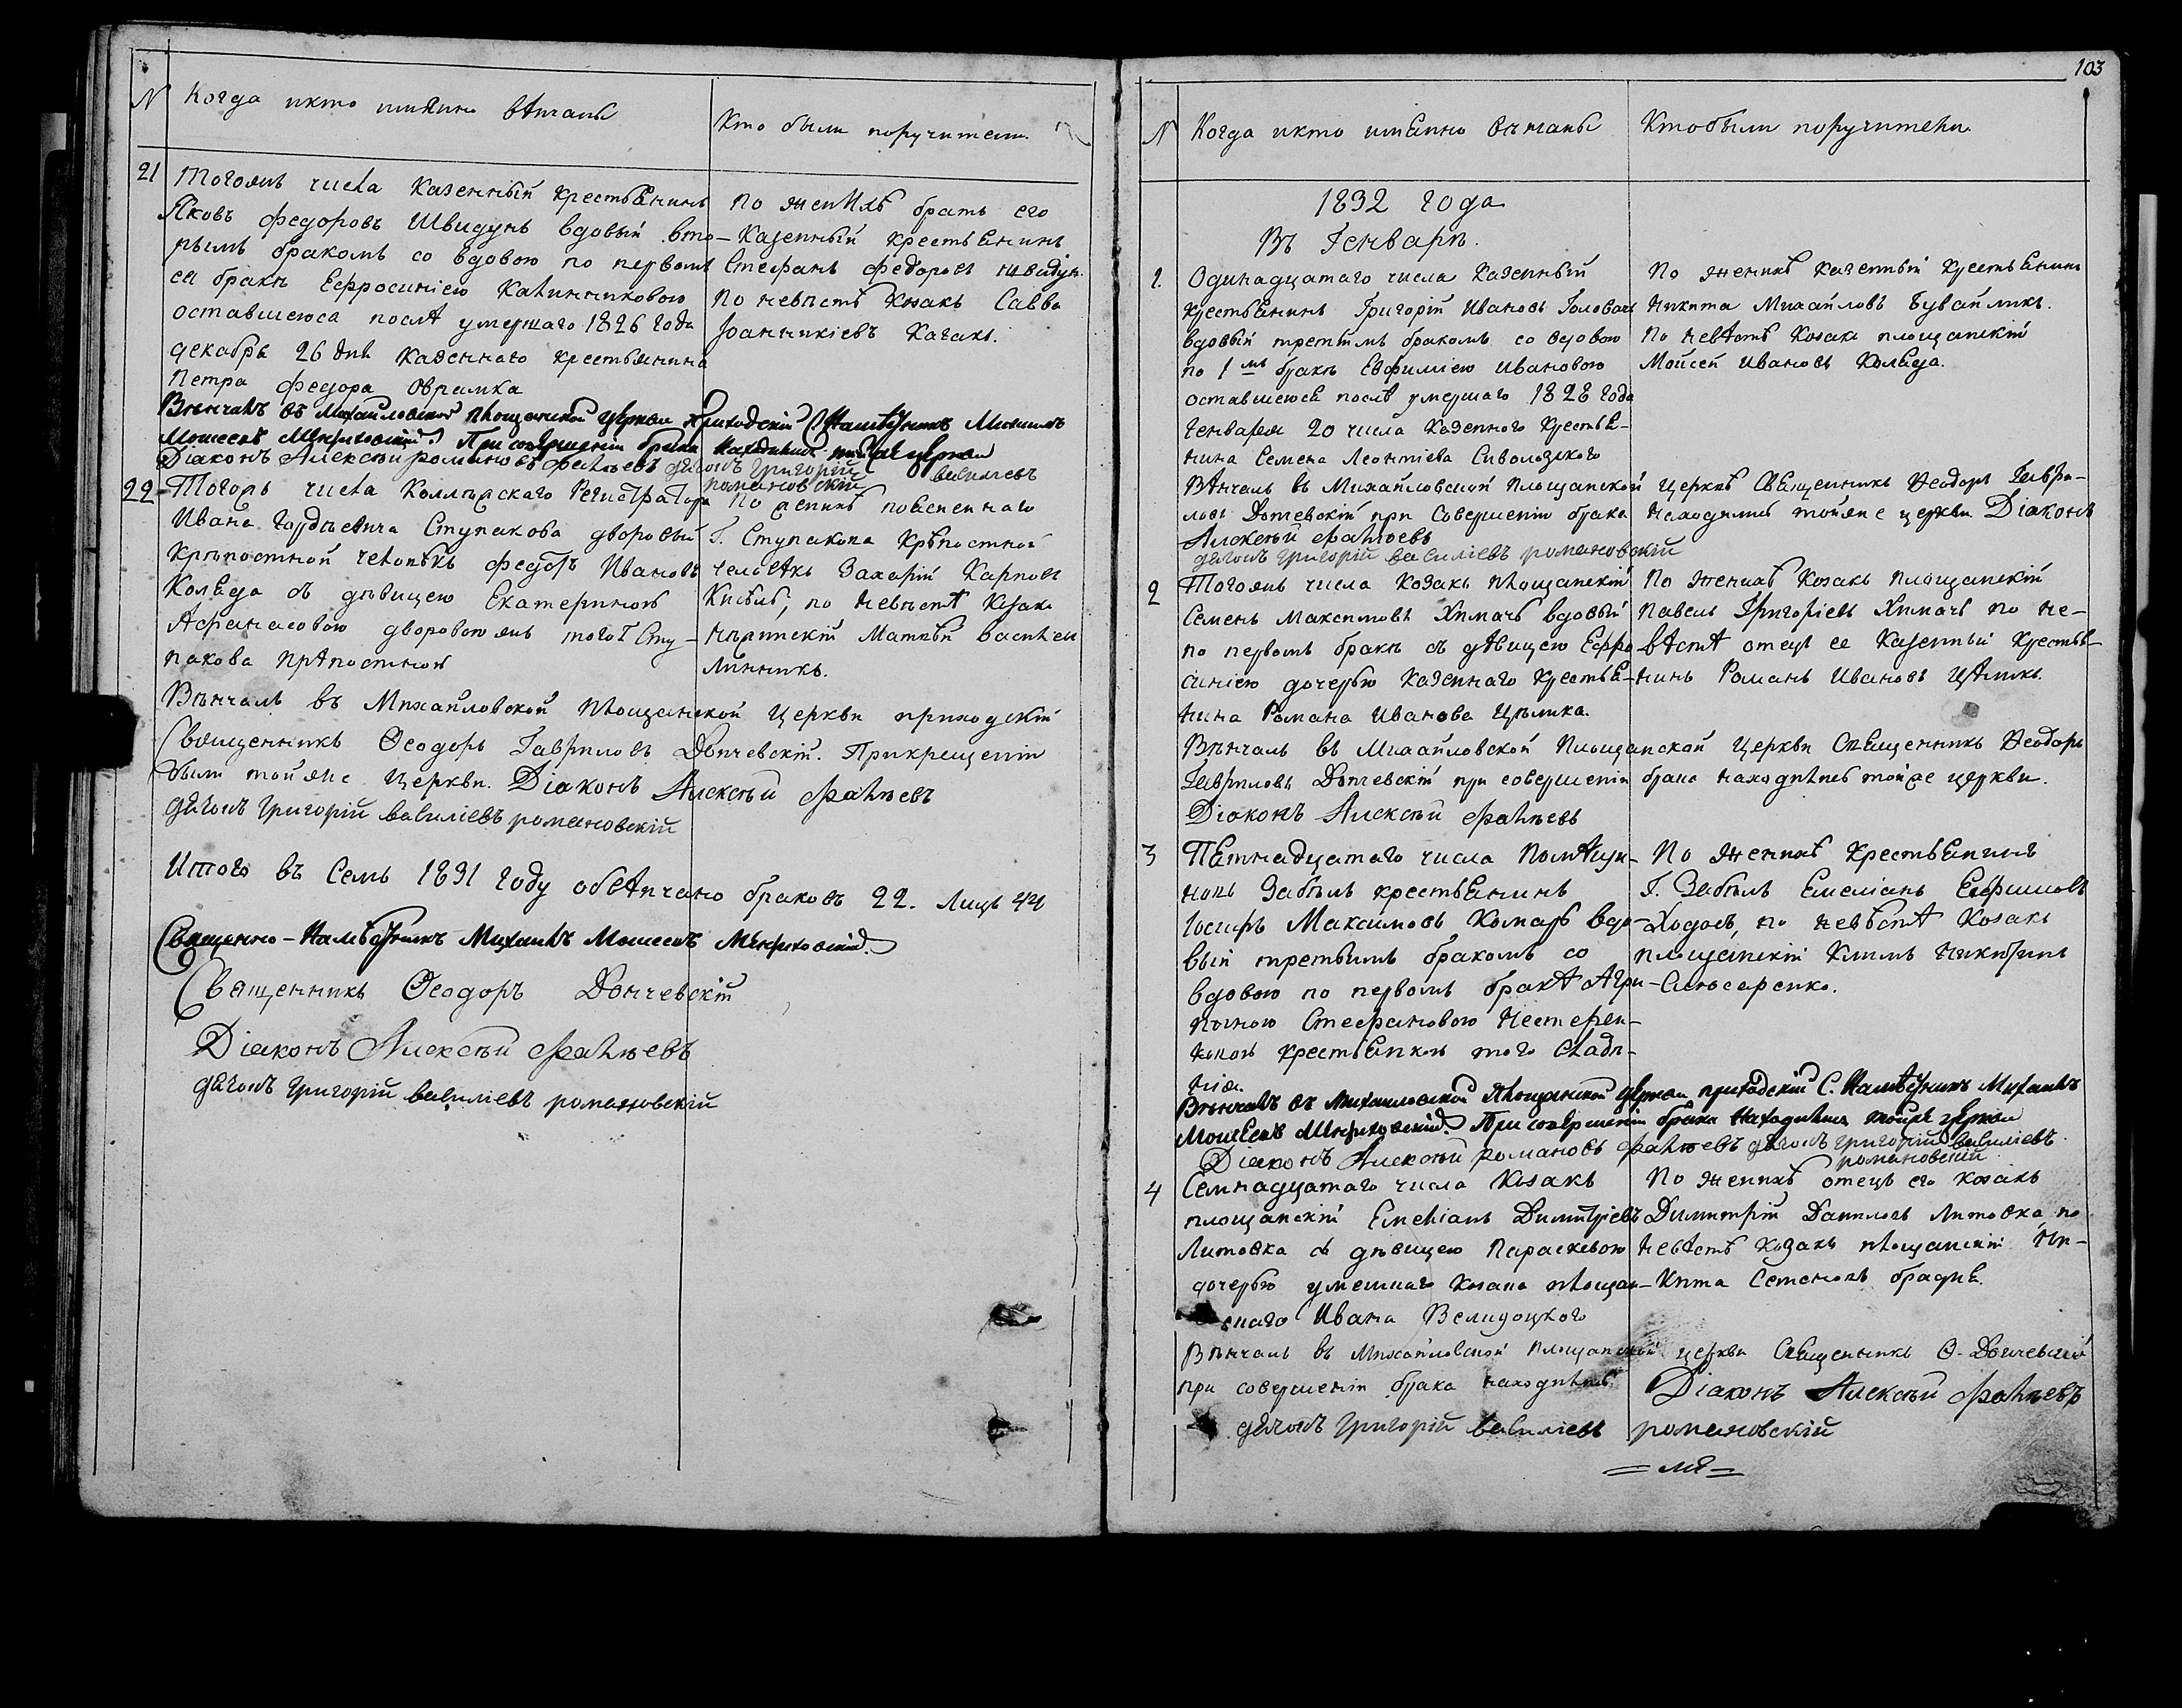 N Когда икто имянно вѣнчаны
Кто были поручители
21 Тогожъ числа Казенный крестьянинъ
Яковъ Федоровъ Швидунъ вдовый вто-
рымъ бракомъ со вдовою по первомъ
ея бракѣ Евфросиніею Калинниковою
оставшеюся послѣ умершаго 1826 года
декабря 26 дня казеннаго крестьянина
Петра Федора Оврамка
По женихѣ братъ его
Казенный крестьянинъ
Стефанъ Федоровъ Швидун.
По невѣстѣ Козакъ Савва
Іоанникіевъ Качакъ.
Вѣнчалъ въ Михайловской площанской церкви приходскій С Намѣстникъ Михаилъ
Моисеевъ При совершеніи брака находились тойже церкви
Діаконъ Алексѣй романовъ Фалѣевъ дячокъ григорій василіевъ
романовскій
22 Тогожъ числа Коллежскаго Регистратора
Ивана Гордѣевича Ступакова дворовый
крѣпостной человѣкъ Федоръ Ивановъ
Коляда съ дѣвицею Екатериною
Афанасовою дворовою жъ того Г Сту-
пакова крѣпостною
По женихѣ поясненнаго
Г. Ступакова Крѣпостной
человѣкъ Захарій Карповъ
по невѣстѣ Козакъ
Матвѣй Василіевъ
Линникъ.
Вѣнчалъ въ Михайловской площанской Церкви приходскій
Священникъ Ѳеодоръ Гавриловъ Дончевскій. Прикрещеніи
были той же Церкви. Діаконъ Алексѣй Фалѣевъ
дячокъ Григорій василіевъ романовскій
Итого въ семъ 1831 году обвѣнчано браковъ 22. Лицъ 44
Священно-Намѣстникъ Михаилъ Моисеевъ
Священникъ Ѳеодоръ Дончевскій
Діаконъ Алексѣй Фалѣевъ
дячокъ Григорій василіевъ романовскій
103
N Когда икто имянно вѣнчаны
Ктобыли поручители.
1832 года
Въ Генварѣ.
1 Одинадцатаго числа казенный
крестьянинъ Григорій Ивановъ Головачъ
вдовый третіимъ бракомъ со вдовою
по 1мъ бракѣ Евфиміею Ивановою
оставшеюся послѣ умершаго 1828 года
Генваря 20 числа казенного крестья-
нина Семена Леонтіева Сиволозского
По женихѣ казенный крестьянин
Никита Михайловъ Бувайликъ.
По невѣстѣ Козакъ площанскій
Мойсей Ивановъ Коляда.
Вѣнчалъ въ Михайловской Площанской церквѣ Священникъ Ѳеодоръ Гаври-
ловъ Дончевскій при Совершеніи брака находились тойже церкви Діаконъ
Алексѣй Фалѣевъ
дячокъ григорій василіевъ романовскій
2 Тогожъ числа козакъ площанскій
Семенъ Максимовъ Химачъ вдовый
по первомъ бракѣ съ дѣвицею Евфро-
синіею дочерью казеннаго крестья-
нина Романа Иванова Цѣлика.
По женихѣ Козакъ площанскій
Павелъ Григоріевъ Химачъ по не-
вѣстѣ отецъ ее казенный крестья-
нинъ Романъ Ивановъ Цѣликъ.
Вѣнчалъ въ Михайловской Площанской Церкви Священникъ Ѳеодоръ
Гавриловъ Дончевскій при совершеніи брака находились тойже церкви.
Діаконъ Алексѣй Фалѣевъ
3 Пятнадцатаго числа помѣщи-
ковъ Забѣлъ крестьянинъ
Іосифъ Максимовъ Комаръ вдо-
вый третьимъ бракомъ со
вдовою по первомъ бракѣ Агри-
пиною Стефановою Нестерен-
ковою крестьянкою того владѣ-
нія.
По женихѣ крестьянинъ
Г. Забѣлъ Емеліанъ Евфимовъ
Ходосъ, по невѣстѣ козакъ
площанскій Климъ Никитинъ
Вѣнчалъ въ Михаиловской Площанской церкви приходскій С. Намѣстникъ Михаилъ
Моисеевъ При совершеніи брака находились тойже церкви
Діаконъ Алексѣй романовъ Фалѣевъ дячокъ григорій василіевъ
романовскій
4 Семнадцатаго числа Козакъ
площанскій Емеліанъ Димитріевъ
Литовка съ дѣвицею Параскевою
дочерью умешаго козака площан-
скаго Ивана Велидоцкого
По женихѣ отецъ его козакъ
Димитрій Даниловъ Литовка по
невѣстѣ козакъ площанскій Ни-
кита Семеновъ
Вѣнчалъ въ Михайловской площанской церкви Священникъ Ѳ. Дончевскій
при совершеніи брака находились Діаконъ Алексѣй Фалѣевъ
дячокъ Григорій василіевъ романовскій